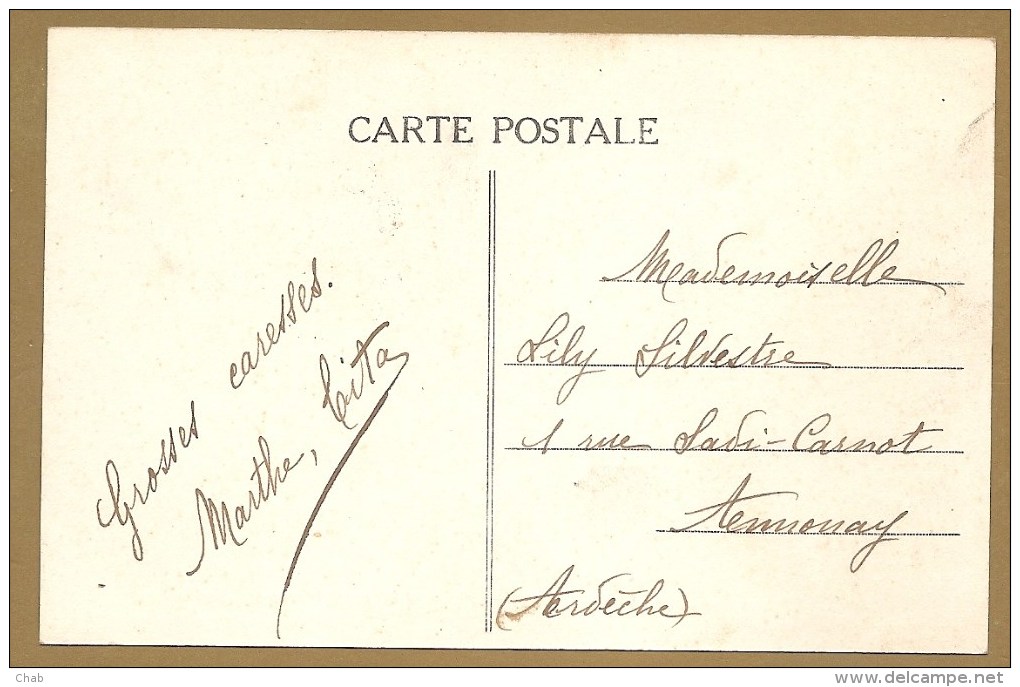 CARTE POSTALE
Grosses caresses.
Marthe, Tita
Mademoiselle
Lily Silvestre
1 rue Sadi-Carnot
Annonay
(Ardèche)
Chab
delcampe.net